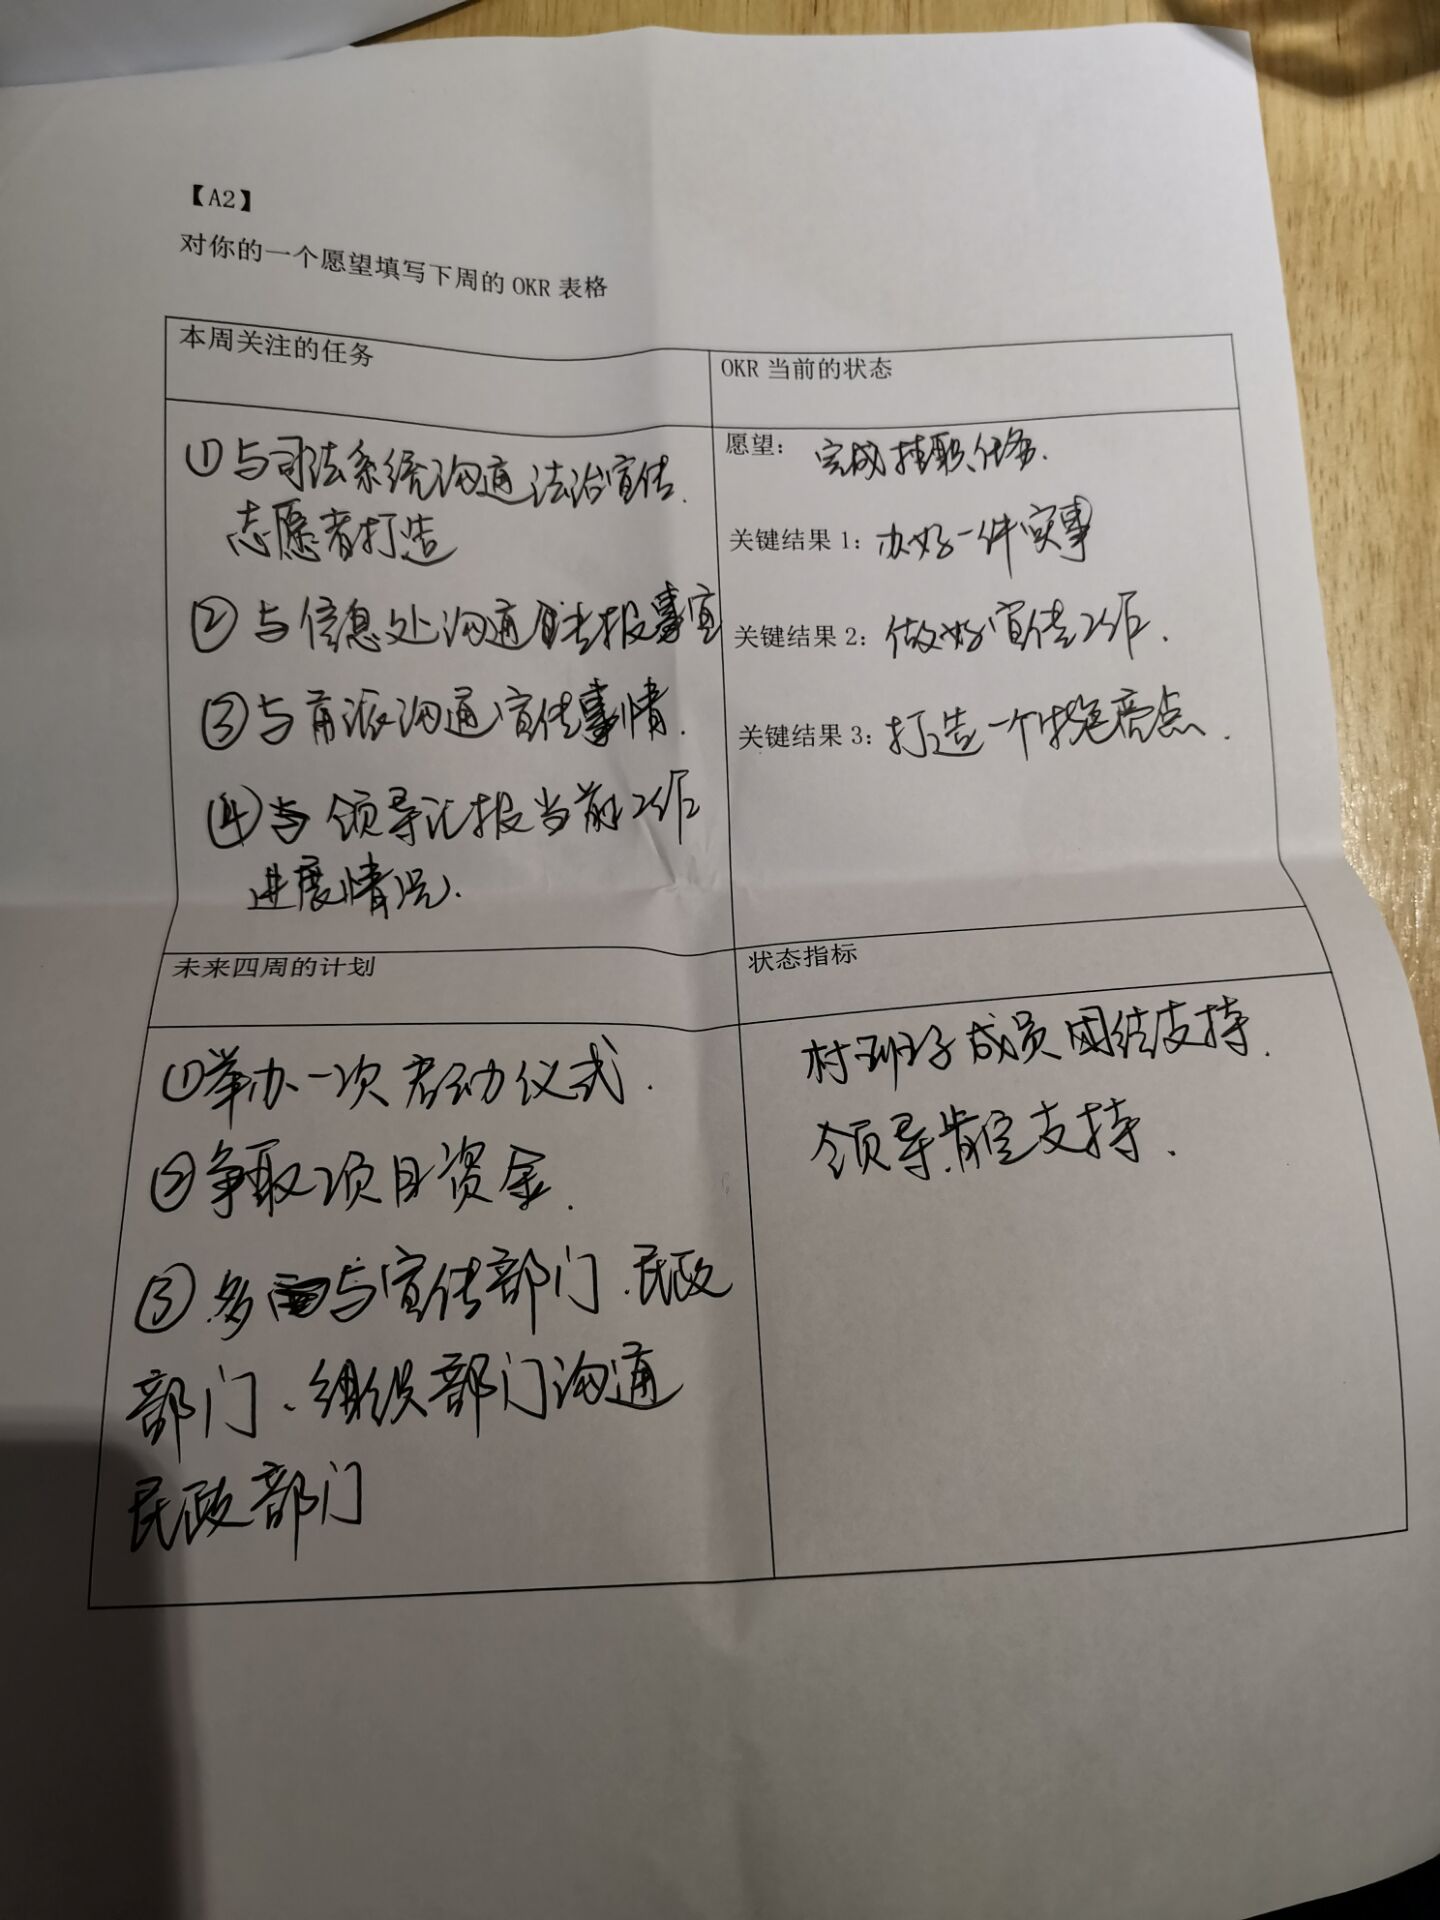 【A2】
对你的一个愿望填写下周的 OKR 表格
本周关注的任务
①与司法系统沟通法治宣传.
志愿者打造
②与信息处沟通 报事宜
③与 派沟通宣传事情.
④与领导汇报当前工作
进展情况.
OKR 当前的状态
愿望: 完成挂职任务.
关键结果 1: 办好一件实事
关键结果 2: 做好宣传工作.
关键结果 3: 打造一个特色亮点.
未来四周的计划
①举办一次启动仪式.
②争取项目资金.
③多与宣传部门.民政
部门、组织部门沟通
民政部门
状态指标
村班子成员团结支持.
领导肯定支持.